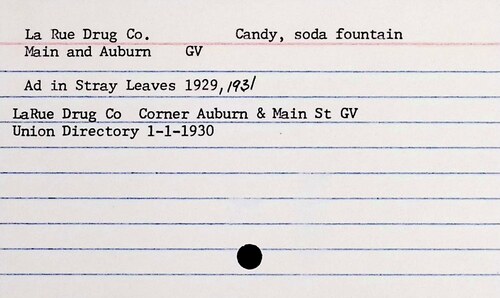 La Rue Drug Co. Candy, soda fountain
Main and Auburn GV
Ad in Stray Leaves 1929, 1931
LaRue Drug Co Corner Auburn & Main St GV
Union Directory 1-1-1930